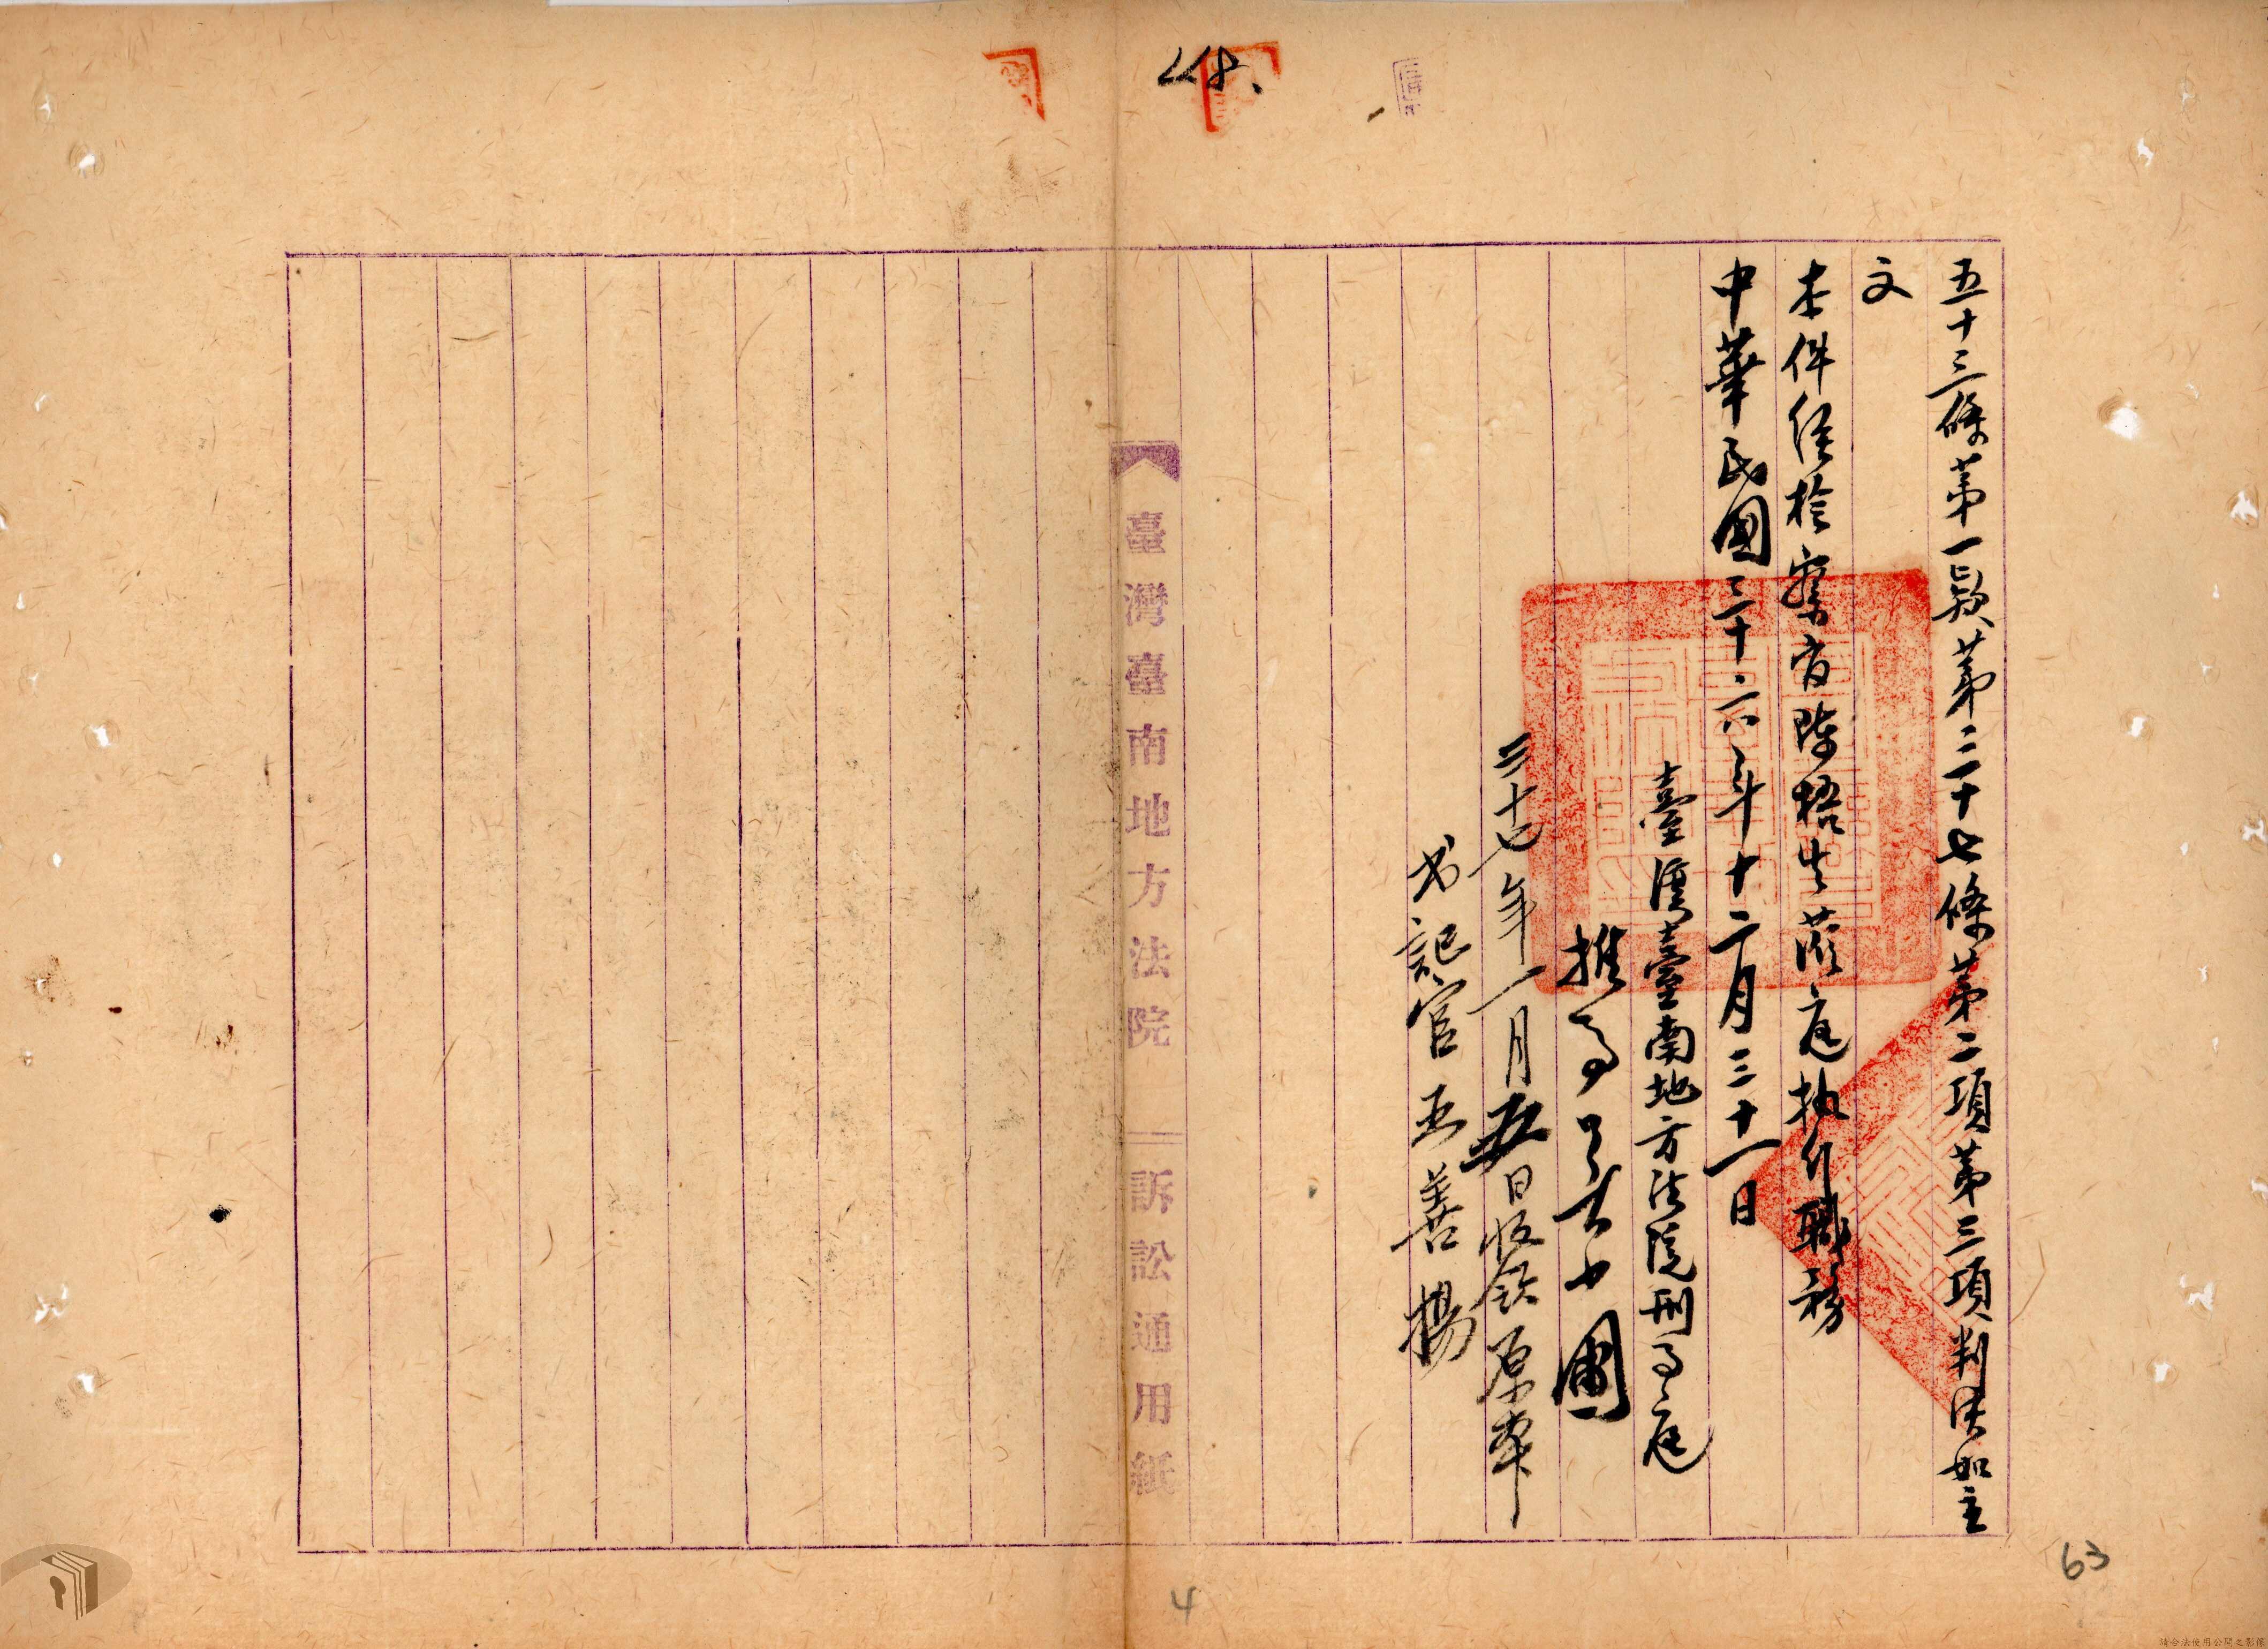 五十三條第一款第二十七條第二項第三項判決如主
文
本件經檢察官陳梧生蒞庭執行職務
中華民國三十六年十二月三十一日
臺灣臺南地方法院刑事庭
推事
三十七年一月五日收領原本
书記官 王善揚
臺灣臺南地方法院
訴訟通用紙
4
63
請合法使用公開之影像